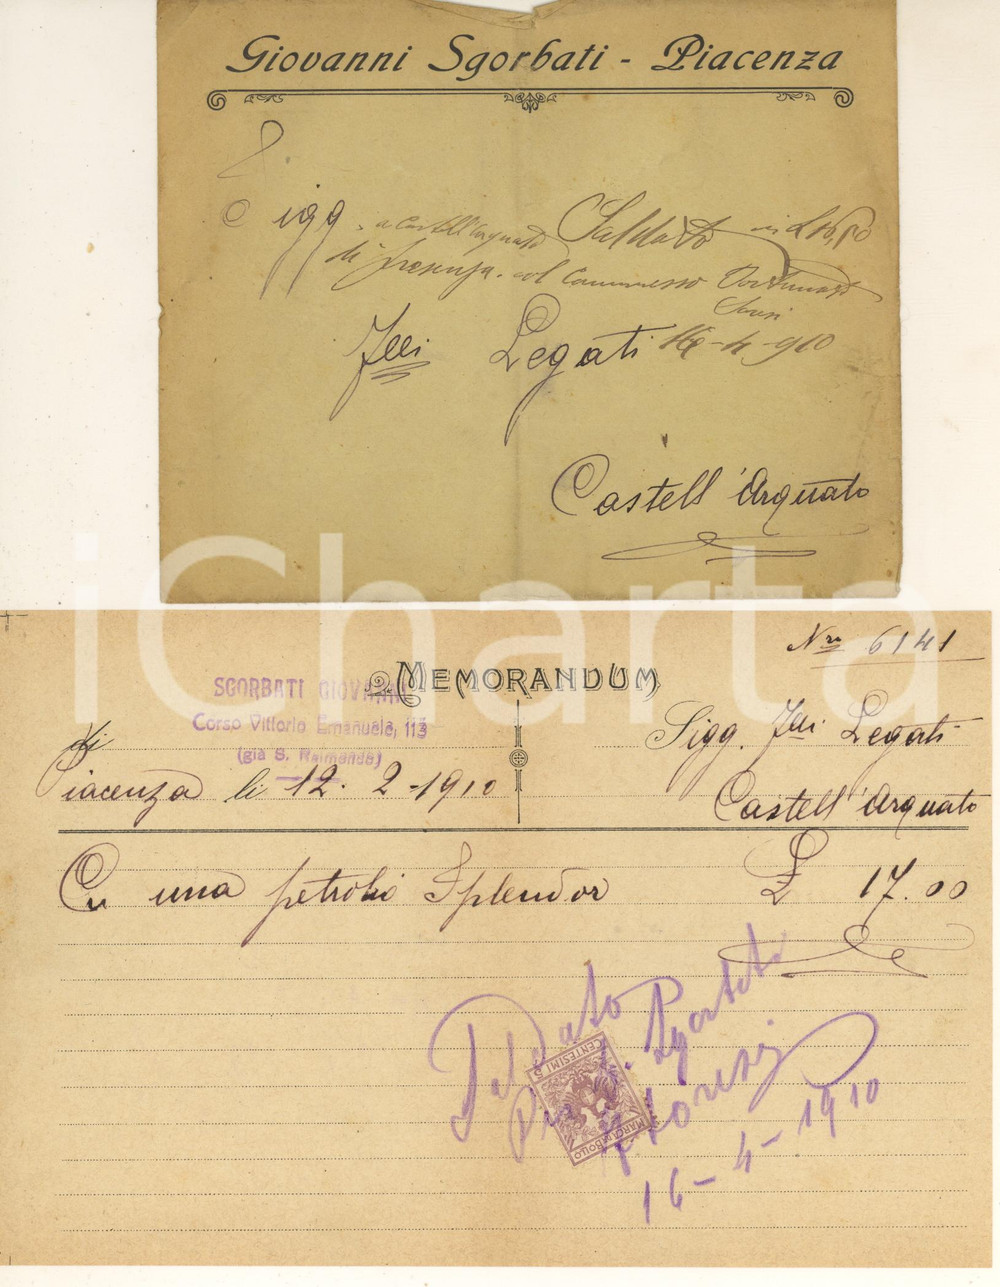 Giovanni Sgorbati - Piacenza
Sigg. a Castell'Arquato Saldato in L 16,50
in presenza col Commesso
Flli Legati 16-4-910
Castell'Arquato
Nro 6141
SGORBATI GIOVANNI
MEMORANDUM
Corso Vittorio Emanuele, 113
(già S. Raimondo)
di
Sigg. Flli Legati
Piacenza li 12. 2 - 1910
Castell'Arquato
Cu una petrolio Splendor £ 17.00
Saldato
Per G. Sgorbati
CENTESIMI 5
MARCA DA BOLLO
16-4-1910
iCharta